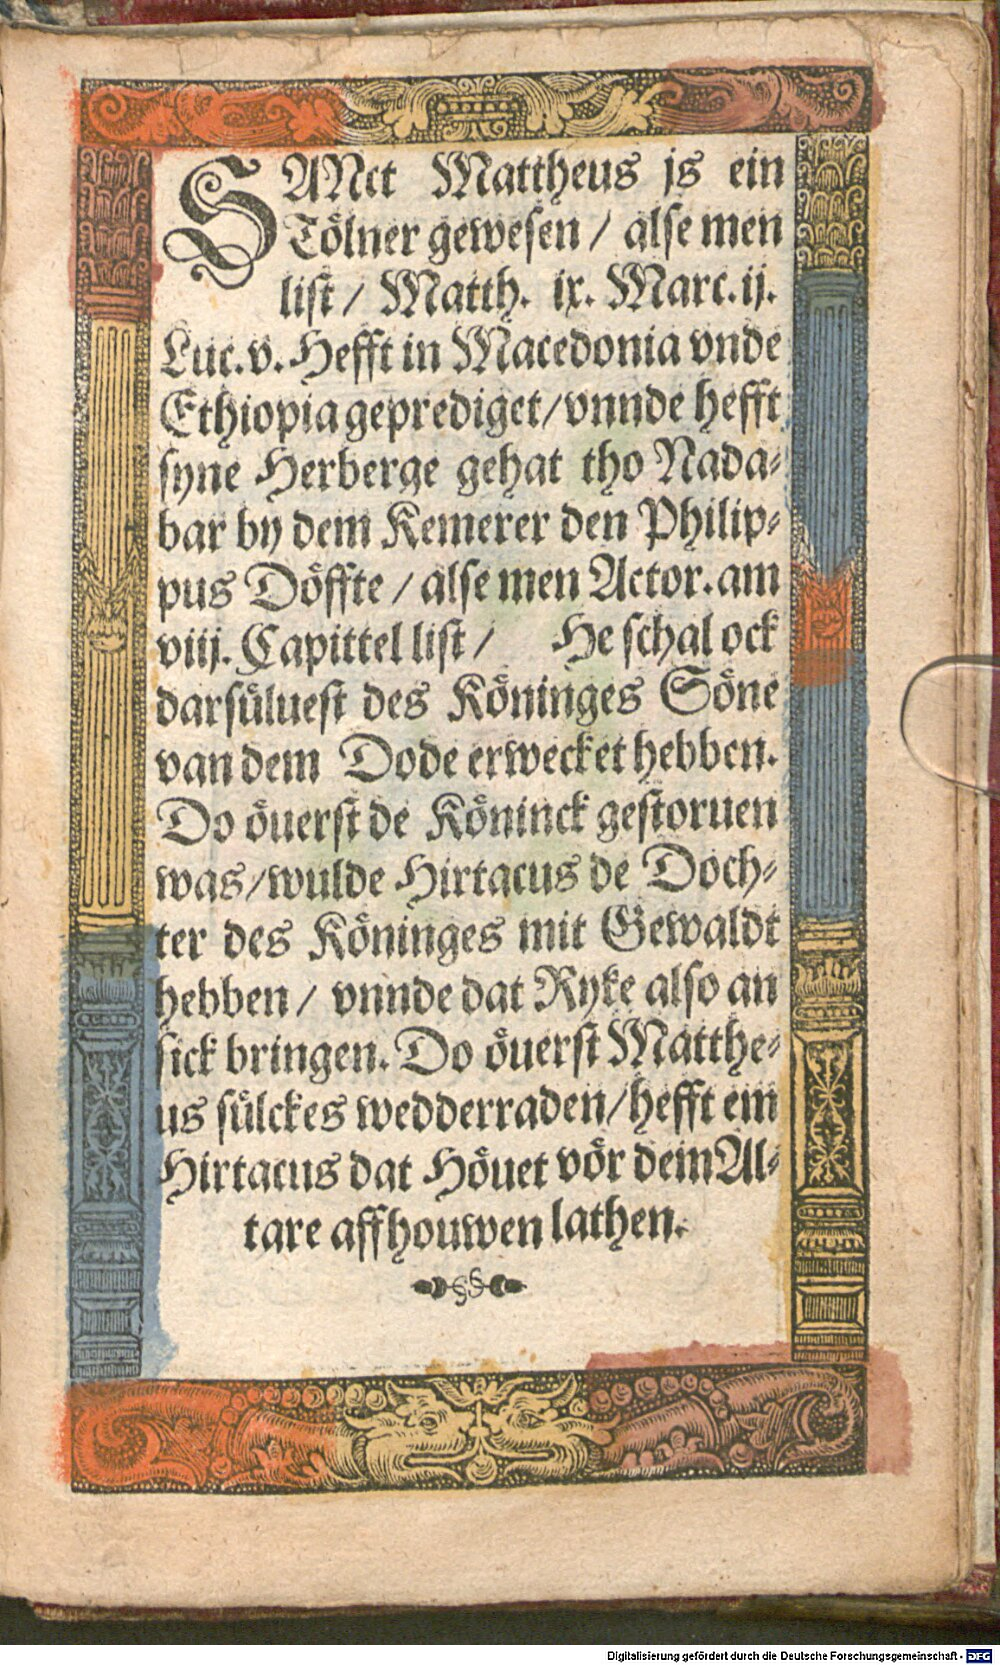 SANct Mattheus js ein
Tölner gewesen / alse men
list / Matth. ix. Marc. ij.
Luc. v. Hefft in Macedonia vnde
Ethiopia geprediget / vnnde hefft
syne Herberge gehat tho Nada-
bar by dem Kemerer den Philip-
pus Döffte / alse men Actor. am
viij. Capittel list / He schal ock
darsüluest des Köninges Söne
van dem Dode erwecket hebben.
Do öuerst de Köninck gestoruen
was / wulde Hirtacus de Doch-
ter des Köninges mit Gewaldt
hebben / vnnde dat Ryke also an
sick bringen. Do öuerst Matthe-
us sülckes wedderraden / hefft em
Hirtacus dat Höuet vör dem Al-
tare affhouwen lathen.
Digitalisierung gefördert durch die Deutsche Forschungsgemeinschaft - DFG